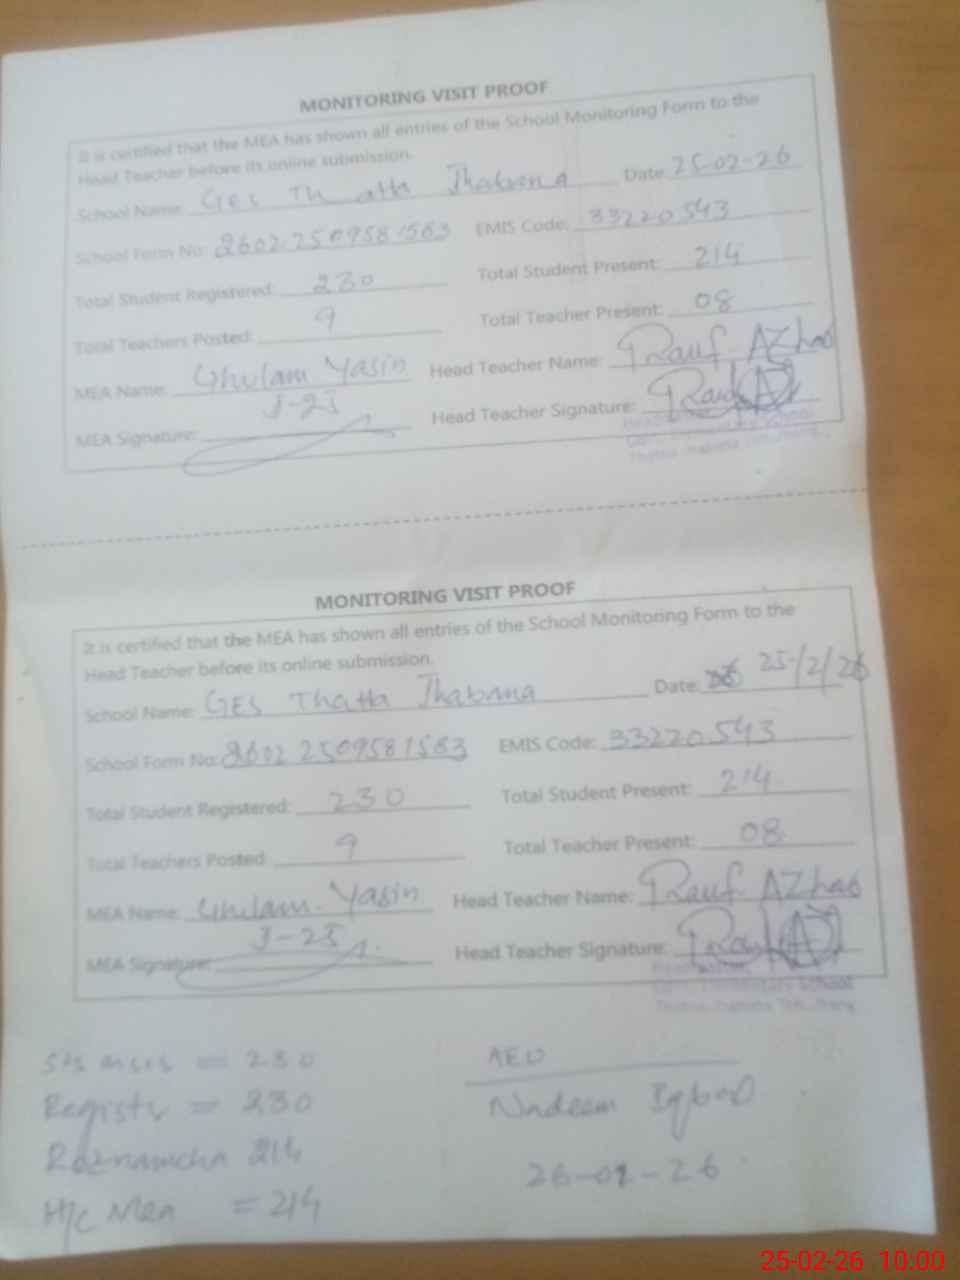 MONITORING VISIT PROOF
It is certified that the MEA has shown all entries of the School Monitoring Form to the
Head Teacher before its online submission.
School Name: GES Thatta Jhabana Date 25-02-26
School Form No: 2602 2509581563 EMIS Code: 33220543
Total Student Registered: 230 Total Student Present: 214
Total Teachers Posted: 9 Total Teacher Present: 08
MEA Name: Ghulam Yasin Head Teacher Name: Rauf Azhar
J-25
MEA Signature: Head Teacher Signature:
MONITORING VISIT PROOF
It is certified that the MEA has shown all entries of the School Monitoring Form to the
Head Teacher before its online submission.
School Name: GES Thatta Jhabana Date: 25/2/26
School Form No: 2602 2509581563 EMIS Code: 33220543
Total Student Registered: 230 Total Student Present: 214
Total Teachers Posted 9 Total Teacher Present: 08
MEA Name: Ghulam Yasin Head Teacher Name: Rauf Azhar
J-25
MEA Signature: Head Teacher Signature:
Elementary School
= 230
AEO
Registr = 230
Nadeem Iqbal
Roznamcha 214
H/C Mea = 214
25-02-26 10:00